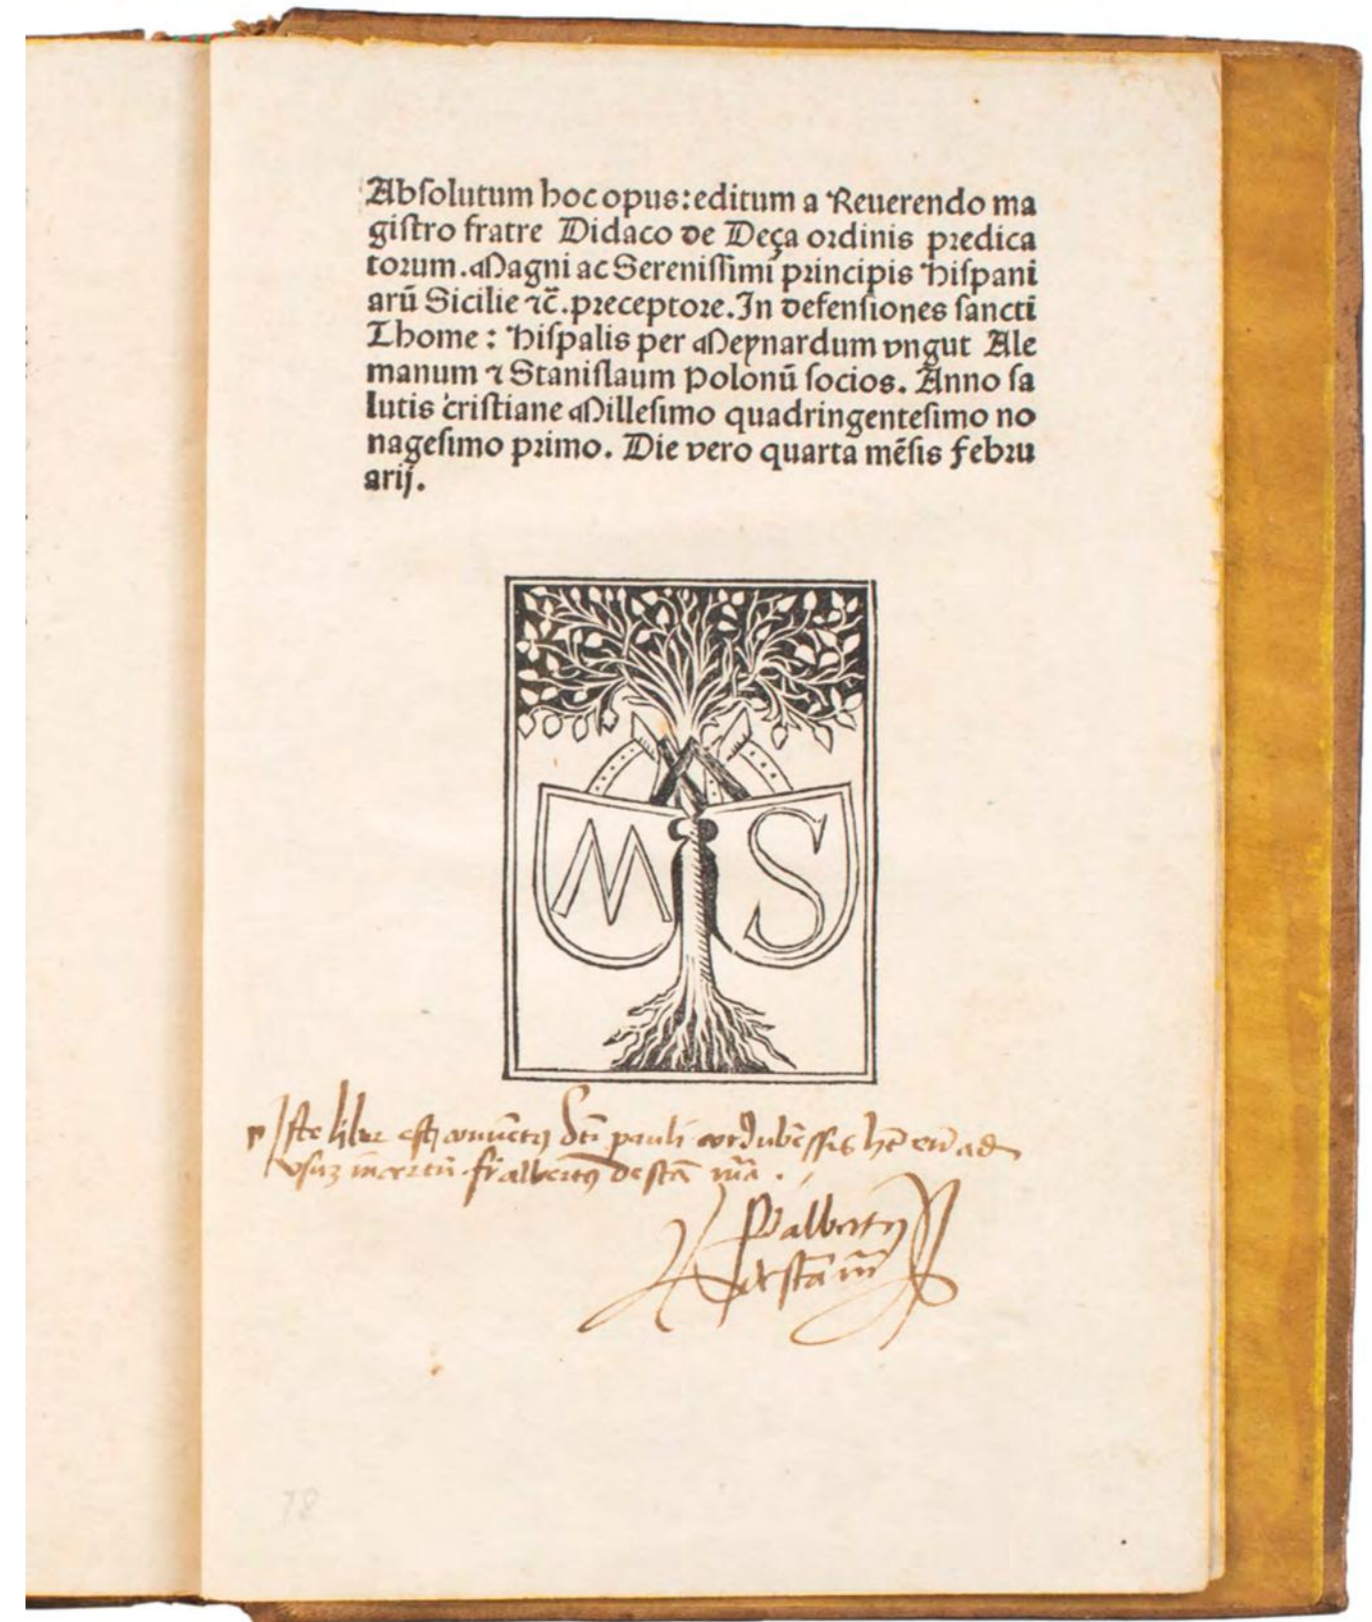 Abſolutum hoc opus: editum a Reuerendo ma
giſtro fratre Didaco de Deça ordinis predica
torum. Magni ac Sereniſſimi principis hiſpani
arū Sicilie ⁊c̄. preceptore. In defenſiones ſancti
Thome: hiſpalis per Meynardum vngut Ale
manum ⁊ Staniſlaum Polonū ſocios. Anno ſa
lutis criſtiane Milleſimo quadringenteſimo no
nageſimo primo. Die vero quarta mēſis febru
arij.
M S
Iſte liber eſt pauli
fr albertꝯ de ſtā
albertꝯ
de ſtā m̄
78